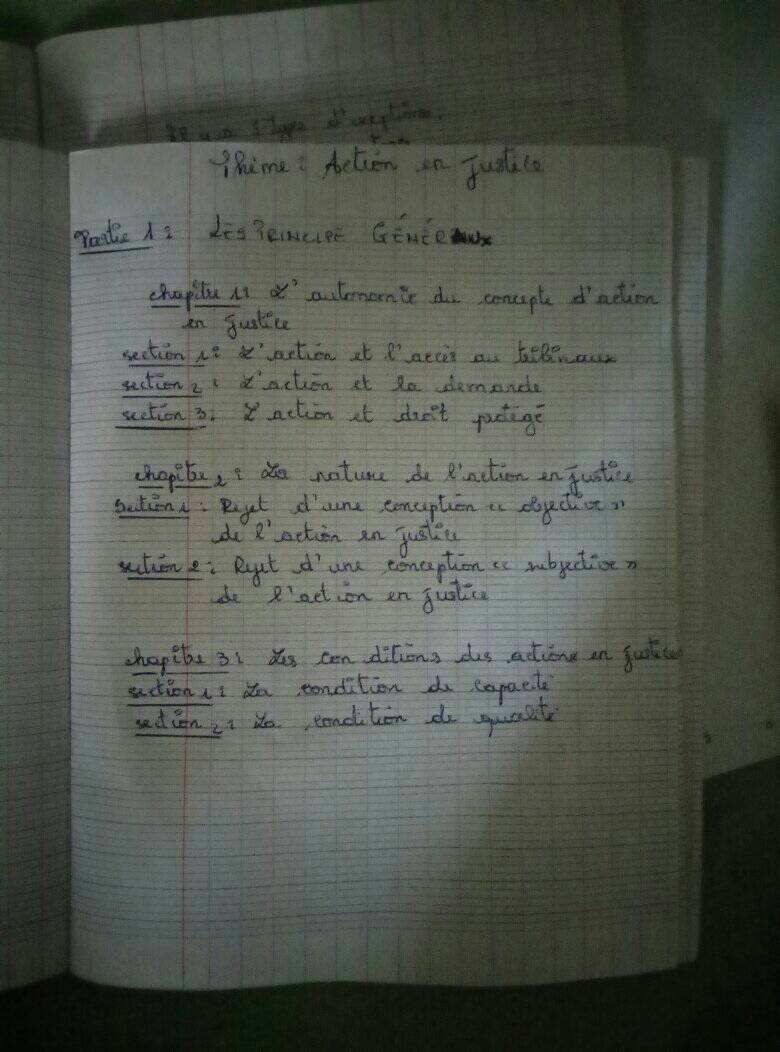 d'exceptions.
Thème : Action en justice
Partie 1 : LES PRINCIPE GÉNÉRAUX
chapitre 1 : L'autonomie du concepte d'action
en justice
section 1 : L'action et l'accès au tribunaux
section 2 : L'action et la demande
section 3 : L'action et droit protégé
chapitre 2 : La nature de l'action en justice
section 1 : Rejet d'une conception « objective »
de l'action en justice
section 2 : Rejet d'une conception « subjective »
de l'action en justice
chapitre 3 : Les conditions des actions en justice
section 1 : La condition de capacité
section 2 : La condition de qualité